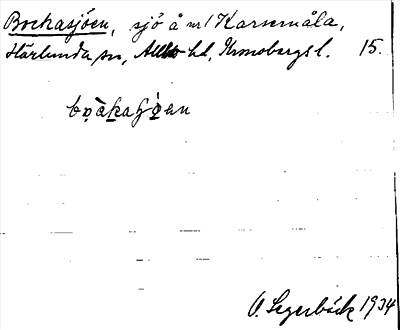 Bockasjöen, sjö å nr 1 Karsemåla,
Härlunda sn, Allbo hd, Kronobergs l. 15.
O. Segerbäck 1934